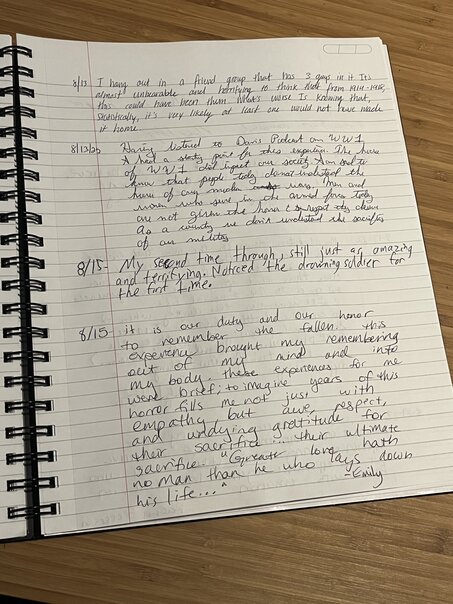 8/13 I hang out in a friend group that has 3 guys in it. Its
almost unbearable and horrifying to think that from 1914-1918,
this could have been them. What's worse is knowing that,
statistically, it's very likely at least one would not have made
it home.
8/13/22 Having listened to Dan's Podcast on WW1
I had a starting point for this experience. The horror
of WW1 did impact our society. I am sad to
know that people today do not understand the
horror of any modern wars. Men and
women who serve in the armed forces today
are not given the honor & respect they deserve
As a country we don't understand the sacrifice
of our military.
8/15- My second time through, still just as amazing
and terrifying. Noticed the drowning soldier for
the first time.
8/15- it is our duty and our honor
to remember the fallen. this
experience brought my remembering
out of my mind and into
my body. these experiences for me
were brief; to imagine years of this
horror fills me not just with
empathy but awe, respect,
and undying gratitude for
their sacrifice... their ultimate
sacrifice. "Greater love hath
no man than he who lays down
his life..." -Emily